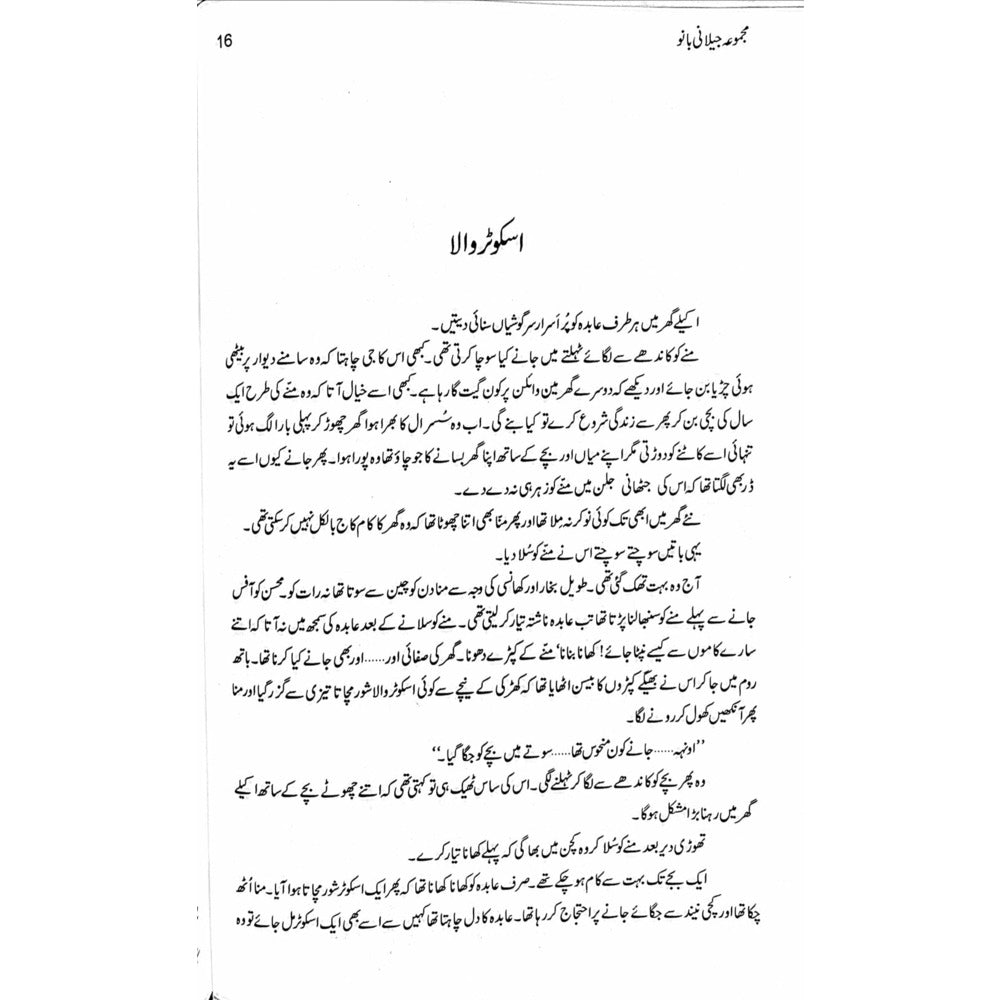 مجموعہ جیلانی بانو
16
اسکوٹر والا
اکیلے گھر میں ہر طرف عابدہ کو پُر اَسرار سرگوشیاں سنائی دیتیں۔
منے کو کاندھے سے لگائے ٹہلتے میں جانے کیا سوچا کرتی تھی۔ کبھی اس کا جی چاہتا کہ وہ سامنے دیوار پر بیٹھی
ہوئی چڑیا بن جائے اور دیکھے کہ دوسرے گھر مین وائلن پر کون گیت گا رہا ہے۔ کبھی اسے خیال آتا کہ وہ منّے کی طرح ایک
سال کی بچی بن کر پھر سے زندگی شروع کرے تو کیا بنے گی۔ اب وہ سُسرال کا بھرا ہوا گھر چھوڑ کر پہلی بار الگ ہوئی تو
تنہائی اسے کاٹنے کو دوڑتی مگر اپنے میاں اور بچے کے ساتھ اپنا گھر بسانے کا جو چاؤ تھا وہ پورا ہوا۔ پھر جانے کیوں اسے یہ
ڈر بھی لگتا تھا کہ اس کی جٹھانی جلن میں منّے کو زہر ہی نہ دے دے۔
نئے گھر میں ابھی تک کوئی نوکر نہ مِلا تھا اور پھر منّا بھی اتنا چھوٹا تھا کہ وہ گھر کا کام کاج بالکل نہیں کر سکتی تھی۔
یہی باتیں سوچتے سوچتے اس نے منّے کو سُلا دیا۔
آج وہ بہت تھک گئی تھی۔ طویل بخار اور کھانسی کی وجہ سے منا دن کو چین سے سوتا تھا نہ رات کو۔ محسن کو آفس
جانے سے پہلے منے کو سنبھالنا پڑتا تھا تب عابدہ ناشتہ تیار کر لیتی تھی۔ منے کو سلانے کے بعد عابدہ کی سمجھ میں نہ آتا کہ اتنے
سارے کاموں سے کیسے نپٹا جائے! کھانا بنانا‘ منّے کے کپڑے دھونا۔ گھر کی صفائی اور……اور بھی جانے کیا کرنا تھا۔ باتھ
روم میں جا کر اس نے بھیگے کپڑوں کا بیسن اٹھایا تھا کہ کھڑکی کے نیچے سے کوئی اسکوٹر والا شور مچاتا تیزی سے گزر گیا اور منا
پھر آنکھیں کھول کر رونے لگا۔
’’اونہہ……جانے کون منحوس تھا……سوتے میں بچے کو جگا گیا۔‘‘
وہ پھر بچے کو کاندھے سے لگا کر ٹہلنے لگی۔ اس کی ساس ٹھیک ہی تو کہتی تھی کہ اتنے چھوٹے بچے کے ساتھ اکیلے
گھر میں رہنا بڑا مشکل ہو گا۔
تھوڑی دیر بعد منے کو سُلا کر وہ کچن میں بھاگی کہ پہلے کھانا تیار کرے۔
ایک بجے تک بہت سے کام ہو چکے تھے۔ صرف عابدہ کو کھانا کھانا تھا کہ پھر ایک اسکوٹر شور مچاتا ہوا آیا۔ منا اُٹھ
چکا تھا اور کچی نیند سے جگائے جانے پر احتجاج کر رہا تھا۔ عابدہ کا دل چاہتا تھا کہیں سے اسے بھی ایک اسکوٹر مل جائے تو وہ